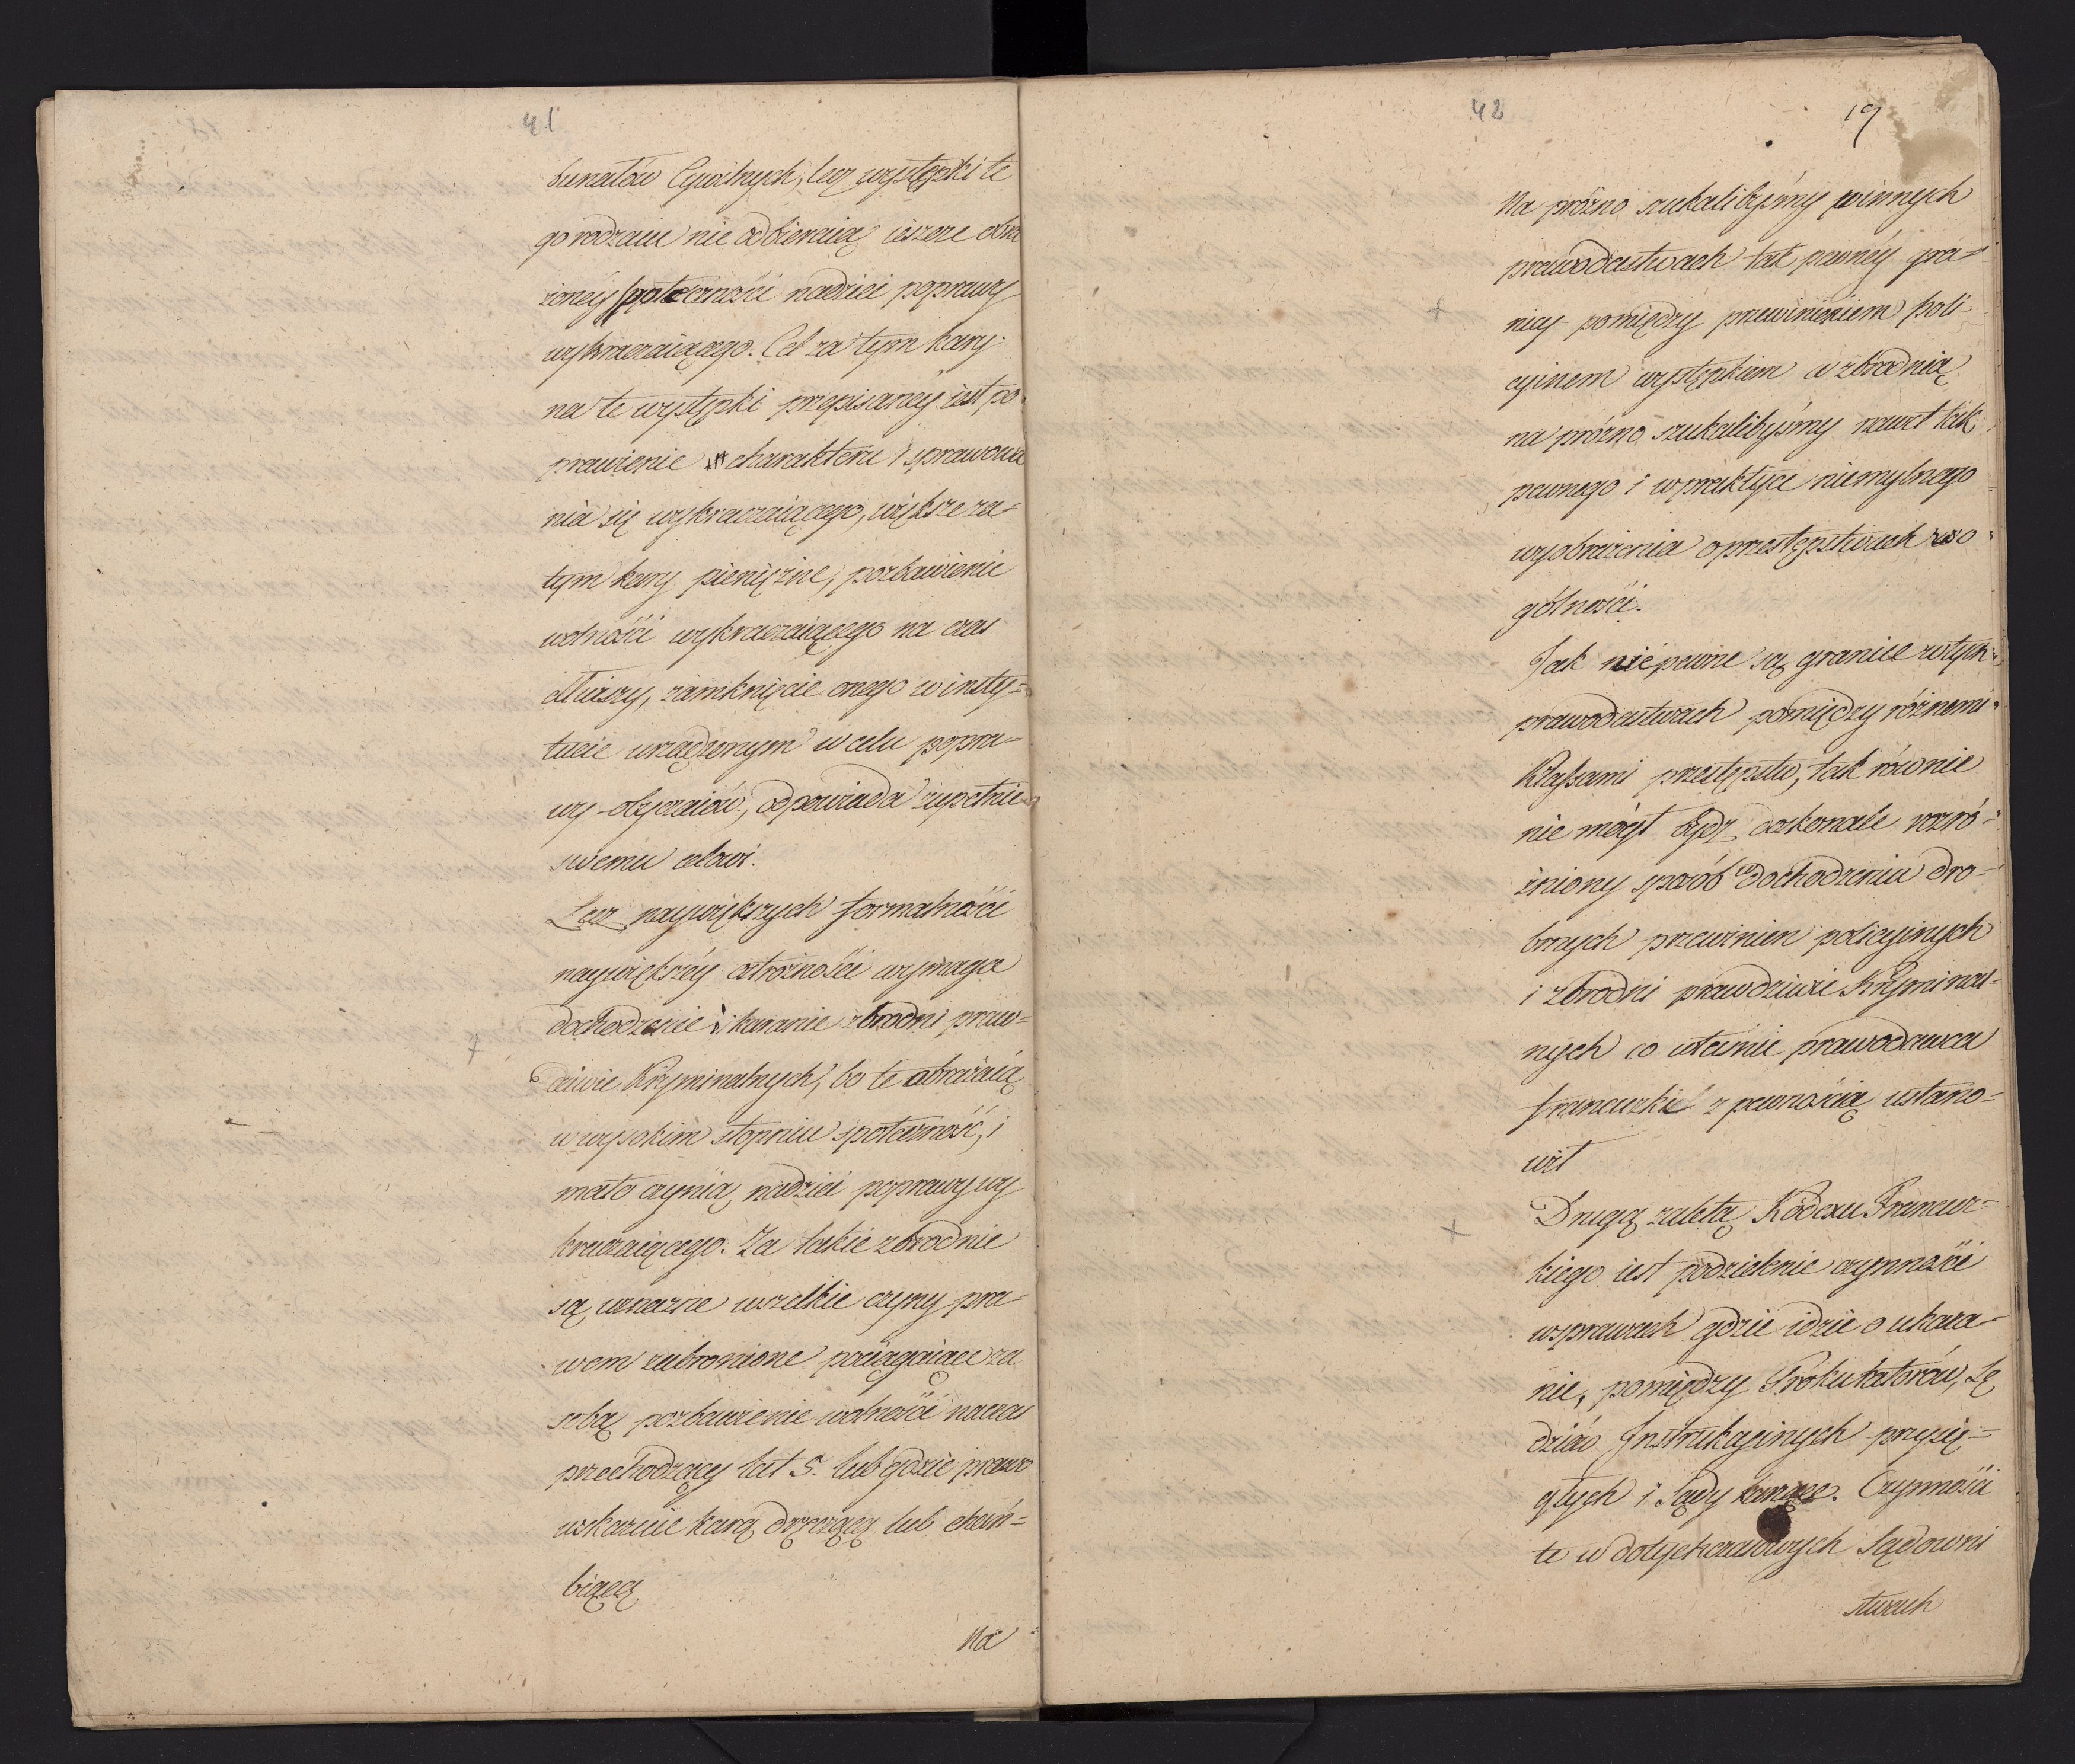 41
bunałów Cywilnych, lecz występki te
go rodzaiu nie odbieraią ieszcze obra
żonéy społeczności nadziei poprawy
wykraczaiącego. Cel za tym kary
na te występki przepisanéy iest po
prawienie charakteru i sprawowa
nia się wykraczaiącego, większe za=
tym kary pieniężne, pozbawienie
wolności wykraczaiącego na czas
dłuższy, zamknięcie onego w insty=
tucie urządzonym w celu popra=
wy obyczaiów, odpowiada zupełnie
swemu celowi.
Lecz naywiększych formalności
naywiększéy ostrożności wymaga
dochodzenie i karanie zbrodni praw=
dziwie Kryminalnych, bo te obrażaią
w wysokim stopniu społeczność, i
mało czynią nadziei poprawy wy
kraczaiącego. Za takie zbrodnie
są uznane wszelkie czyny pra=
wem zabronione pociągaiące za
sobą pozbawienie wolności na czas
przechodzący lat 5. lub gdzie prawo
wskazuie karą dręczącą lub chań=
biącą
Na
42
19
Na próżno szukalibyśmy w innych
prawodastwach tak pewnéy gra=
nicy pomiędzy przewinieniem poli
cyinem występkiem a zbrodnią
na próżno szukalibyśmy nawet tak
pewnego i w praktyce niemylnego
wyobrażenia o przestępstwach w o
gólności.
Jak niepewne są granice w tych
prawodastwach pomiędzy różnemi
klassami przestępstw, tak równie
nie mógł bydź doskonale rozró=
żniony sposób w dochodzeniu dro=
bnych przewinien policyinych
i zbrodni prawdziwie Kryminal=
nych co właśnie prawodawca
francuzki z pewnością ustano=
wił
Drugą zaletą Kodexu Francuz=
kiego iest podzielenie czynności
w sprawach gdzie idzie o ukara=
nie, pomiędzy Prokuratorów, Sę
dziów Instrukcyinych przysię=
głych i Sądy karzące. Czynności
te w dotychczasowych Sądowni
stwach